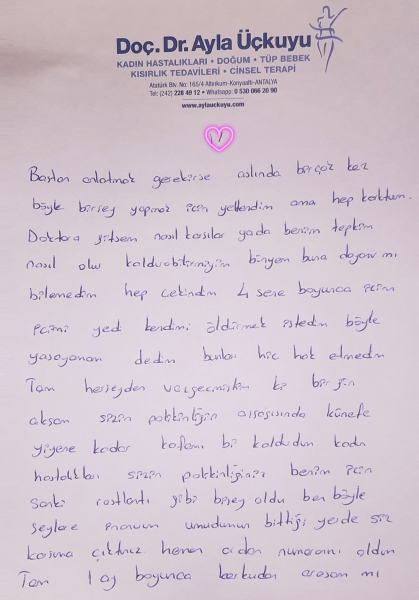 Doç. Dr. Ayla Üçkuyu
KADIN HASTALIKLARI • DOĞUM • TÜP BEBEK
KISIRLIK TEDAVİLERİ • CİNSEL TERAPİ
Atatürk Blv. No: 165/4 Altınkum-Konyaaltı-ANTALYA
Tel: (242) 228 49 12 • Whatsapp: 0 530 066 20 90
www.aylauckuyu.com
Baştan anlatmak gerekirse aslında birçok kez
böyle birşey yapmak için yeltendim ama hep korktum.
Doktora gitsem nasıl karşılar yada benim tepkim
nasıl olur kaldırabilirmiyim bünyem buna dayanır mı
bilemedim hep çekindim 4 sene boyunca içim
içimi yedi kendimi öldürmek istedim böyle
yaşayamam dedim bunları hiç hak etmedim
Tam herşeyden vazgeçmiştim ki bir gün
akşam sizin polikliniğin aşağısında künefe
yiyene kadar kafamı bi kaldırdım kadın
hastalıkları sizin polikliniğiniz benim için
sanki rastlantı gibi bişey oldu ben böyle
şeylere inanırım umudumun bittiği yerde siz
karşıma çıktınız hemen ordan numaranı aldım
Tam 1 ay boyunca korkudan arasam mı